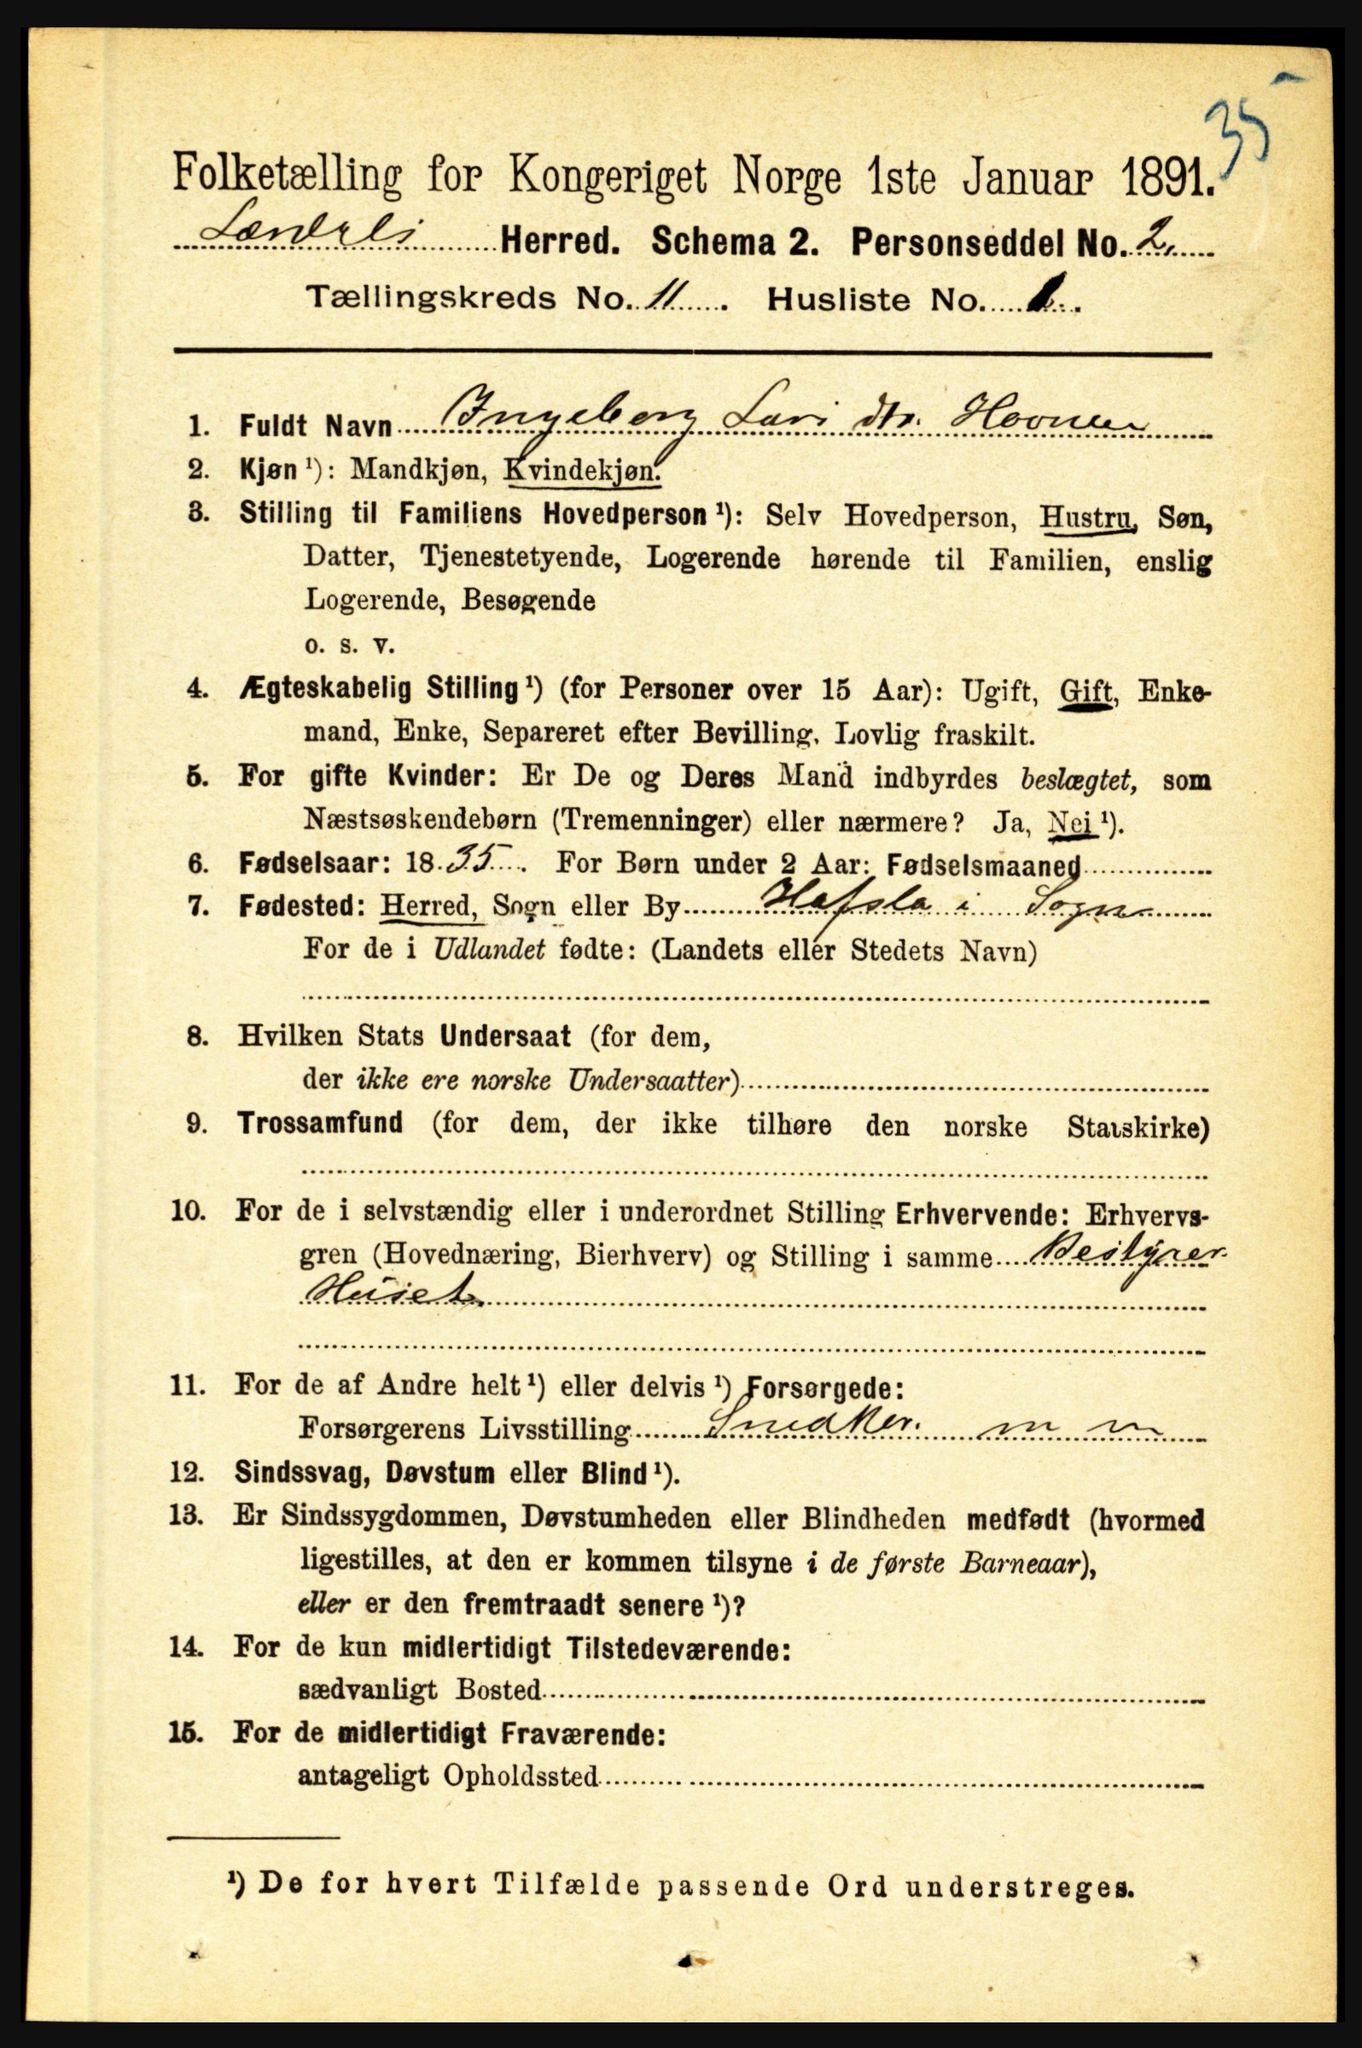 35
Folketælling for Kongeriget Norge 1ste Januar 1891.
Herred. Schema 2. Personseddel No. 2.
Tællingskreds No. 11. Husliste No. 1.
1. Fuldt Navn Ingeborg Lars dtr. Hovnen
2. Kjøn ¹): Mandkjøn, Kvindekjøn.
3. Stilling til Familiens Hovedperson ¹): Selv Hovedperson, Hustru, Søn,
Datter, Tjenestetyende, Logerende hørende til Familien, enslig
Logerende, Besøgende
o. s. v.
4. Ægteskabelig Stilling ¹) (for Personer over 15 Aar): Ugift, Gift, Enke-
mand, Enke, Separeret efter Bevilling, Lovlig fraskilt.
5. For gifte Kvinder: Er De og Deres Mand indbyrdes beslægtet, som
Næstsøskendebørn (Tremenninger) eller nærmere? Ja, Nei ¹).
6. Fødselsaar: 1835. For Børn under 2 Aar: Fødselsmaaned
7. Fødested: Herred, Sogn eller By Hafslo i Sogn
For de i Udlandet fødte: (Landets eller Stedets Navn)
8. Hvilken Stats Undersaat (for dem,
der ikke ere norske Undersaatter)
9. Trossamfund (for dem, der ikke tilhøre den norske Statskirke)
10. For de i selvstændig eller i underordnet Stilling Erhvervende: Erhvervs-
gren (Hovednæring, Bierhverv) og Stilling i samme Bestyrer
Huset
11. For de af Andre helt ¹) eller delvis ¹) Forsørgede:
Forsørgerens Livsstilling Snedker. m m
12. Sindssvag, Døvstum eller Blind ¹).
13. Er Sindssygdommen, Døvstumheden eller Blindheden medfødt (hvormed
ligestilles, at den er kommen tilsyne i de første Barneaar),
eller er den fremtraadt senere ¹)?
14. For de kun midlertidigt Tilstedeværende:
sædvanligt Bosted
15. For de midlertidigt Fraværende:
antageligt Opholdssted
¹) De for hvert Tilfælde passende Ord understreges.